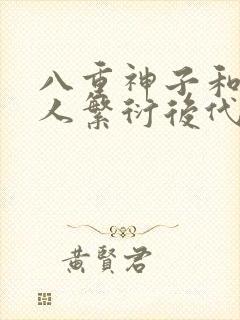 八重神子和
人繁衍後代
黃賢君